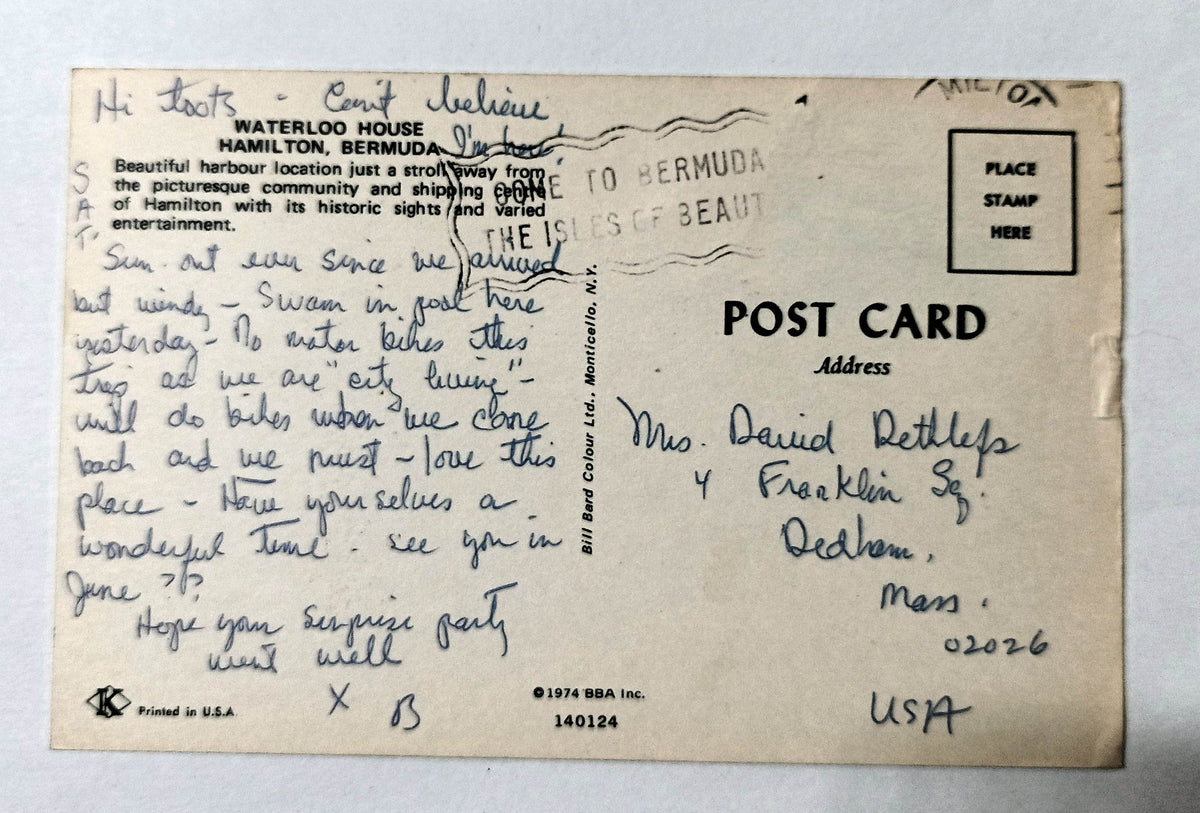 Hi toots - Can't believe
I'm here!
WATERLOO HOUSE
HAMILTON, BERMUDA
Beautiful harbour location just a stroll away from
the picturesque community and shipping centre
of Hamilton with its historic sights and varied
entertainment.
SAT.
Sun out ever since we arrived
but windy - Swam in pool here
yesterday - No motor bikes this
trip as we are "city living" -
will do bikes when we come
back and we must - love this
place - Have yourselves a
wonderful time. see you in
June ??
Hope your surprise party
went well
X B
Printed in U.S.A.
K
©1974 BBA Inc.
140124
Bill Bard Colour Ltd., Monticello, N.Y.
COME TO BERMUDA
THE ISLES OF BEAUT
PLACE
STAMP
HERE
POST CARD
Address
Mrs. David Dethlefs
4 Franklin Sq.
Dedham,
Mass.
02026
USA